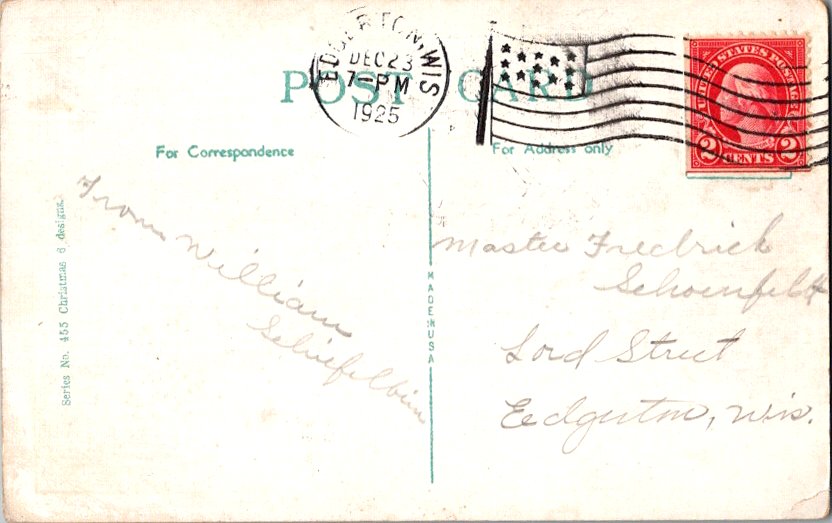 EDGERTON, WIS
DEC 23
7-PM
1925
POST CARD
UNITED STATES POSTAGE
2 CENTS 2
For Correspondence
For Address only
Series No. 455 Christmas 6 designs.
MADE IN USA
From William
Schiefelbein
Master Fredrick
Schoenfeldt
Lord Street
Edgerton, Wis.